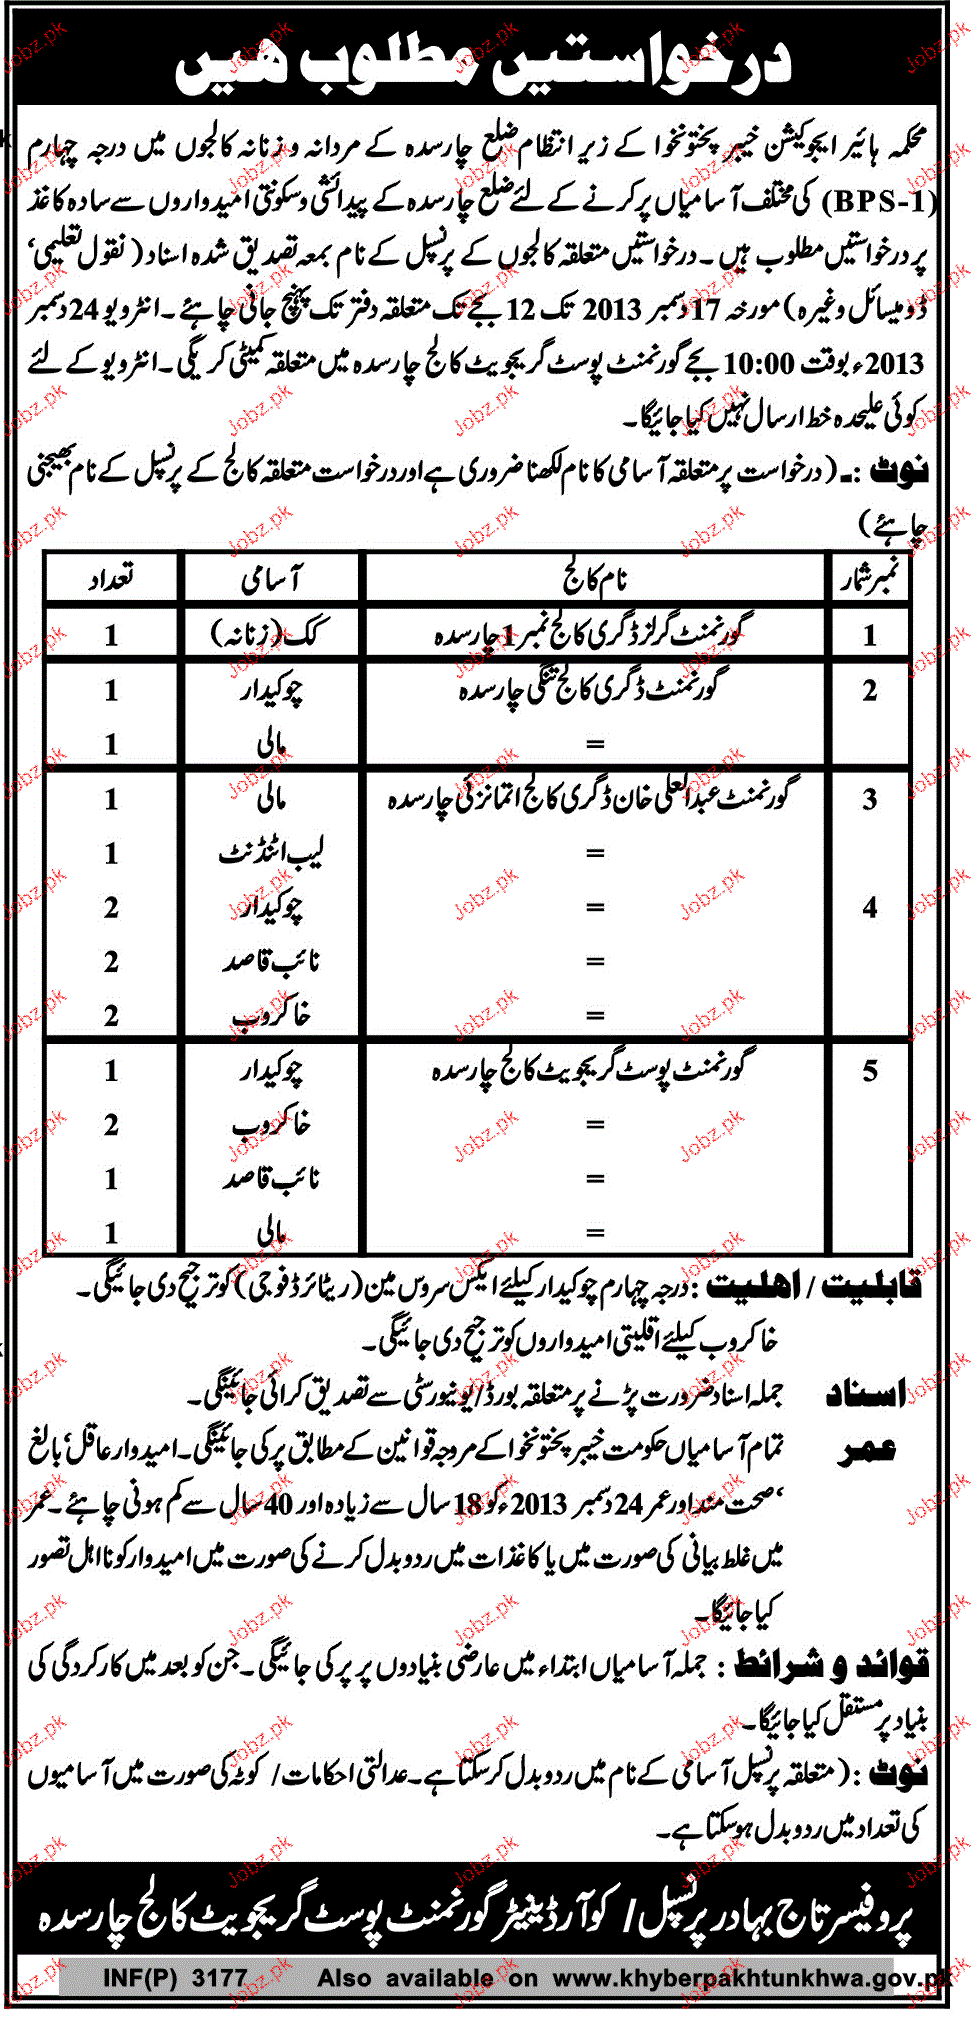 درخواستیں مطلوب ھیں
محکمہ ہائیر ایجوکیشن خیبر پختونخوا کے زیر انتظام ضلع چارسدہ کے مردانہ و زنانہ کالجوں میں درجہ چہارم
(BPS-1) کی مختلف آسامیاں پر کرنے کے لئے ضلع چارسدہ کے پیدائشی و سکونتی امیدواروں سے سادہ کاغذ
پر درخواستیں مطلوب ہیں۔ درخواستیں متعلقہ کالجوں کے پرنسپل کے نام بمعہ تصدیق شدہ اسناد (نقول تعلیمی‘
ڈومیسائل وغیرہ) مورخہ 17 دسمبر 2013 تک 12 بجے تک متعلقہ دفتر تک پہنچ جانی چاہئے۔ انٹرویو 24 دسمبر
2013ء بوقت 10:00 بجے گورنمنٹ پوسٹ گریجویٹ کالج چارسدہ میں متعلقہ کمیٹی کریگی۔ انٹرویو کے لئے
کوئی علیحدہ خط ارسال نہیں کیا جائیگا۔
نوٹ :۔ (درخواست پر متعلقہ آسامی کا نام لکھنا ضروری ہے اور درخواست متعلقہ کالج کے پرنسپل کے نام بھیجنی
چاہئے)
نمبر شمار نام کالج آسامی تعداد
1 گورنمنٹ گرلز ڈگری کالج نمبر 1 چارسدہ کک (زنانہ) 1
2 گورنمنٹ ڈگری کالج تنگی چارسدہ چوکیدار 1
= مالی 1
3 گورنمنٹ عبدالعلی خان ڈگری کالج اتمانزئی چارسدہ مالی 1
= لیب اٹنڈنٹ 1
4 = چوکیدار 2
= نائب قاصد 2
= خاکروب 2
5 گورنمنٹ پوسٹ گریجویٹ کالج چارسدہ چوکیدار 1
= خاکروب 2
= نائب قاصد 1
= مالی 1
قابلیت / اھلیت : درجہ چہارم چوکیدار کیلئے ایکس سروس مین (ریٹائرڈ فوجی) کو ترجیح دی جائیگی۔
خاکروب کیلئے اقلیتی امیدواروں کو ترجیح دی جائیگی۔
اسناد جملہ اسناد ضرورت پڑنے پر متعلقہ بورڈ/یونیورسٹی سے تصدیق کرائی جائینگی۔
عمر تمام آسامیاں حکومت خیبر پختونخوا کے مروجہ قوانین کے مطابق پر کی جائینگی۔ امیدوار عاقل‘ بالغ
‘صحت مند اور عمر 24 دسمبر 2013ء کو 18 سال سے زیادہ اور 40 سال سے کم ہونی چاہئے۔ عمر
میں غلط بیانی کی صورت میں یا کاغذات میں ردوبدل کرنے کی صورت میں امیدوار کو نااہل تصور
کیا جائیگا۔
قوائد و شرائط : جملہ آسامیاں ابتداء میں عارضی بنیادوں پر پر کی جائیگی۔ جن کو بعد میں کارکردگی کی
بنیاد پر مستقل کیا جائیگا۔
نوٹ : (متعلقہ پرنسپل آسامی کے نام میں ردوبدل کر سکتا ہے۔ عدالتی احکامات/ کوٹہ کی صورت میں آسامیوں
کی تعداد میں ردوبدل ہو سکتا ہے۔
پروفیسر تاج بہادر پرنسپل/ کوآرڈینیٹر گورنمنٹ پوسٹ گریجویٹ کالج چارسدہ
INF(P) 3177 Also available on www.khyberpakhtunkhwa.gov.pk
Jobz.pk